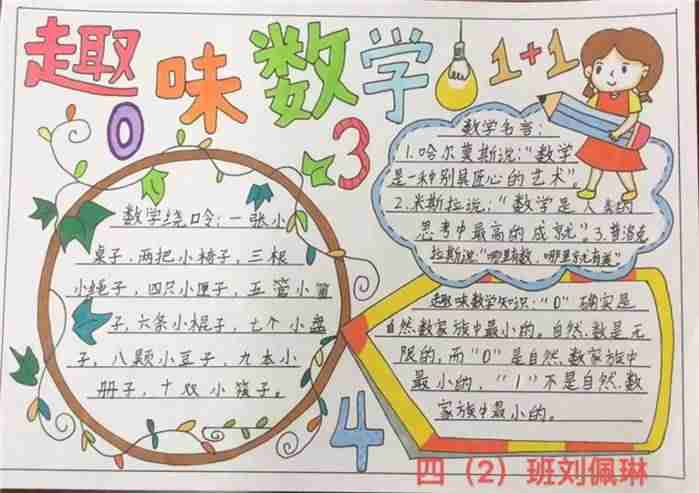 趣味数学
1+1
0
3
数学绕口令:一张小
桌子,两把小椅子,三根
小绳子,四只小匣子,五管小笛
子,六条小棍子,七个小盘
子,八颗小豆子,九本小
册子,十双小筷子。
数学名言:
1.哈尔莫斯说:“数学
是一种别具匠心的艺术”。
2.米斯拉说:“数学是人类的
思考中最高的成就”。3.普洛克
拉斯说:“哪里有数,哪里就有美”
趣味数学知识:“0”确实是
自然数家族中最小的。自然数是无
限的,而“0”是自然数家族中
最小的,“1”不是自然数
家族中最小的。
4
四(2)班刘佩琳